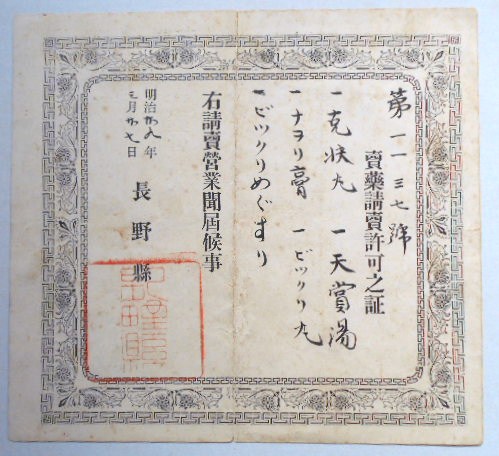 第一一三七號
賣藥請賣許可之証
一克狀丸　一天賞湯
一ナヲリ膏　一ビツクリ丸
一ビツクリめぐすり
右請賣營業聞届候事
明治廿九年
三月廿七日
長野縣